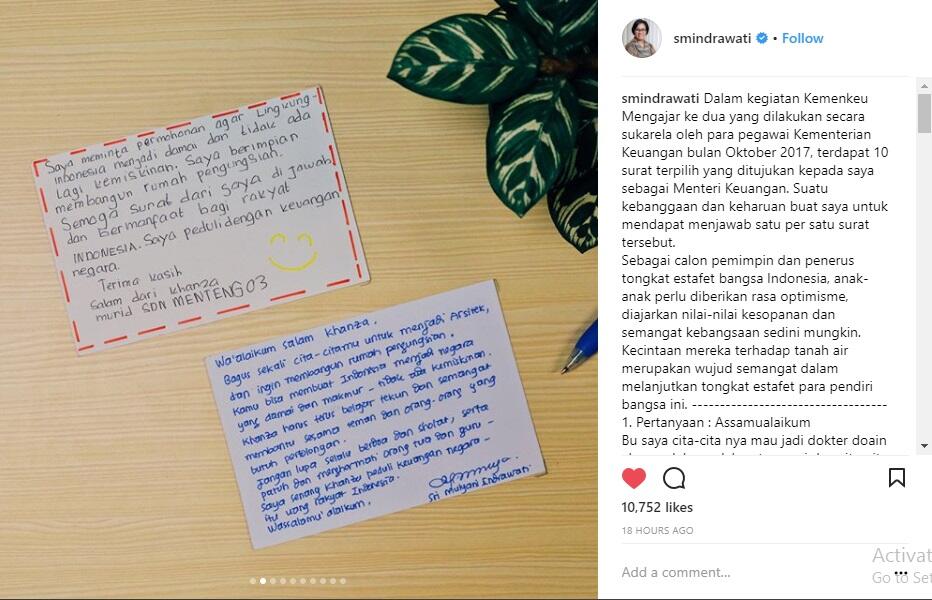 Saya meminta permohonan agar Lingkung-
INDONESIA menjadi damai dan tidak ada
Lagi kemiskinan. Saya berimpian
membangun rumah pengungsian.
Semoga surat dari saya di jawab
dan bermanfaat bagi rakyat
INDONESIA. Saya peduli dengan keuangan
negara.
Terima kasih
Salam dari khanza
murid SDN MENTENG 03
Wa'alaikum salam Khanza,
Bagus sekali cita-citamu untuk menjadi Arsitek,
dan ingin membangun rumah pengungsian.
Kamu bisa membuat Indonesia menjadi negara
yang damai dan makmur - tidak ada kemiskinan.
Khanza harus terus belajar tekun dan semangat
membantu sesama teman dan orang-orang yang
butuh pertolongan.
Jangan lupa selalu berdoa dan sholat, serta
patuh dan menghormati orang tua dan guru-
Saya senang Khanza peduli keuangan negara-
itu uang rakyat Indonesia.
Wassalamu'alaikum.
Sri Mulyani Indrawati
smindrawati • Follow
smindrawati Dalam kegiatan Kemenkeu
Mengajar ke dua yang dilakukan secara
sukarela oleh para pegawai Kementerian
Keuangan bulan Oktober 2017, terdapat 10
surat terpilih yang ditujukan kepada saya
sebagai Menteri Keuangan. Suatu
kebanggaan dan keharuan buat saya untuk
mendapat menjawab satu per satu surat
tersebut.
Sebagai calon pemimpin dan penerus
tongkat estafet bangsa Indonesia, anak-
anak perlu diberikan rasa optimisme,
diajarkan nilai-nilai kesopanan dan
semangat kebangsaan sedini mungkin.
Kecintaan mereka terhadap tanah air
merupakan wujud semangat dalam
melanjutkan tongkat estafet para pendiri
bangsa ini. -----------------------------------
1. Pertanyaan : Assamualaikum
Bu saya cita-cita nya mau jadi dokter doain
10,752 likes
18 HOURS AGO
Add a comment...
Activat
Go to Set